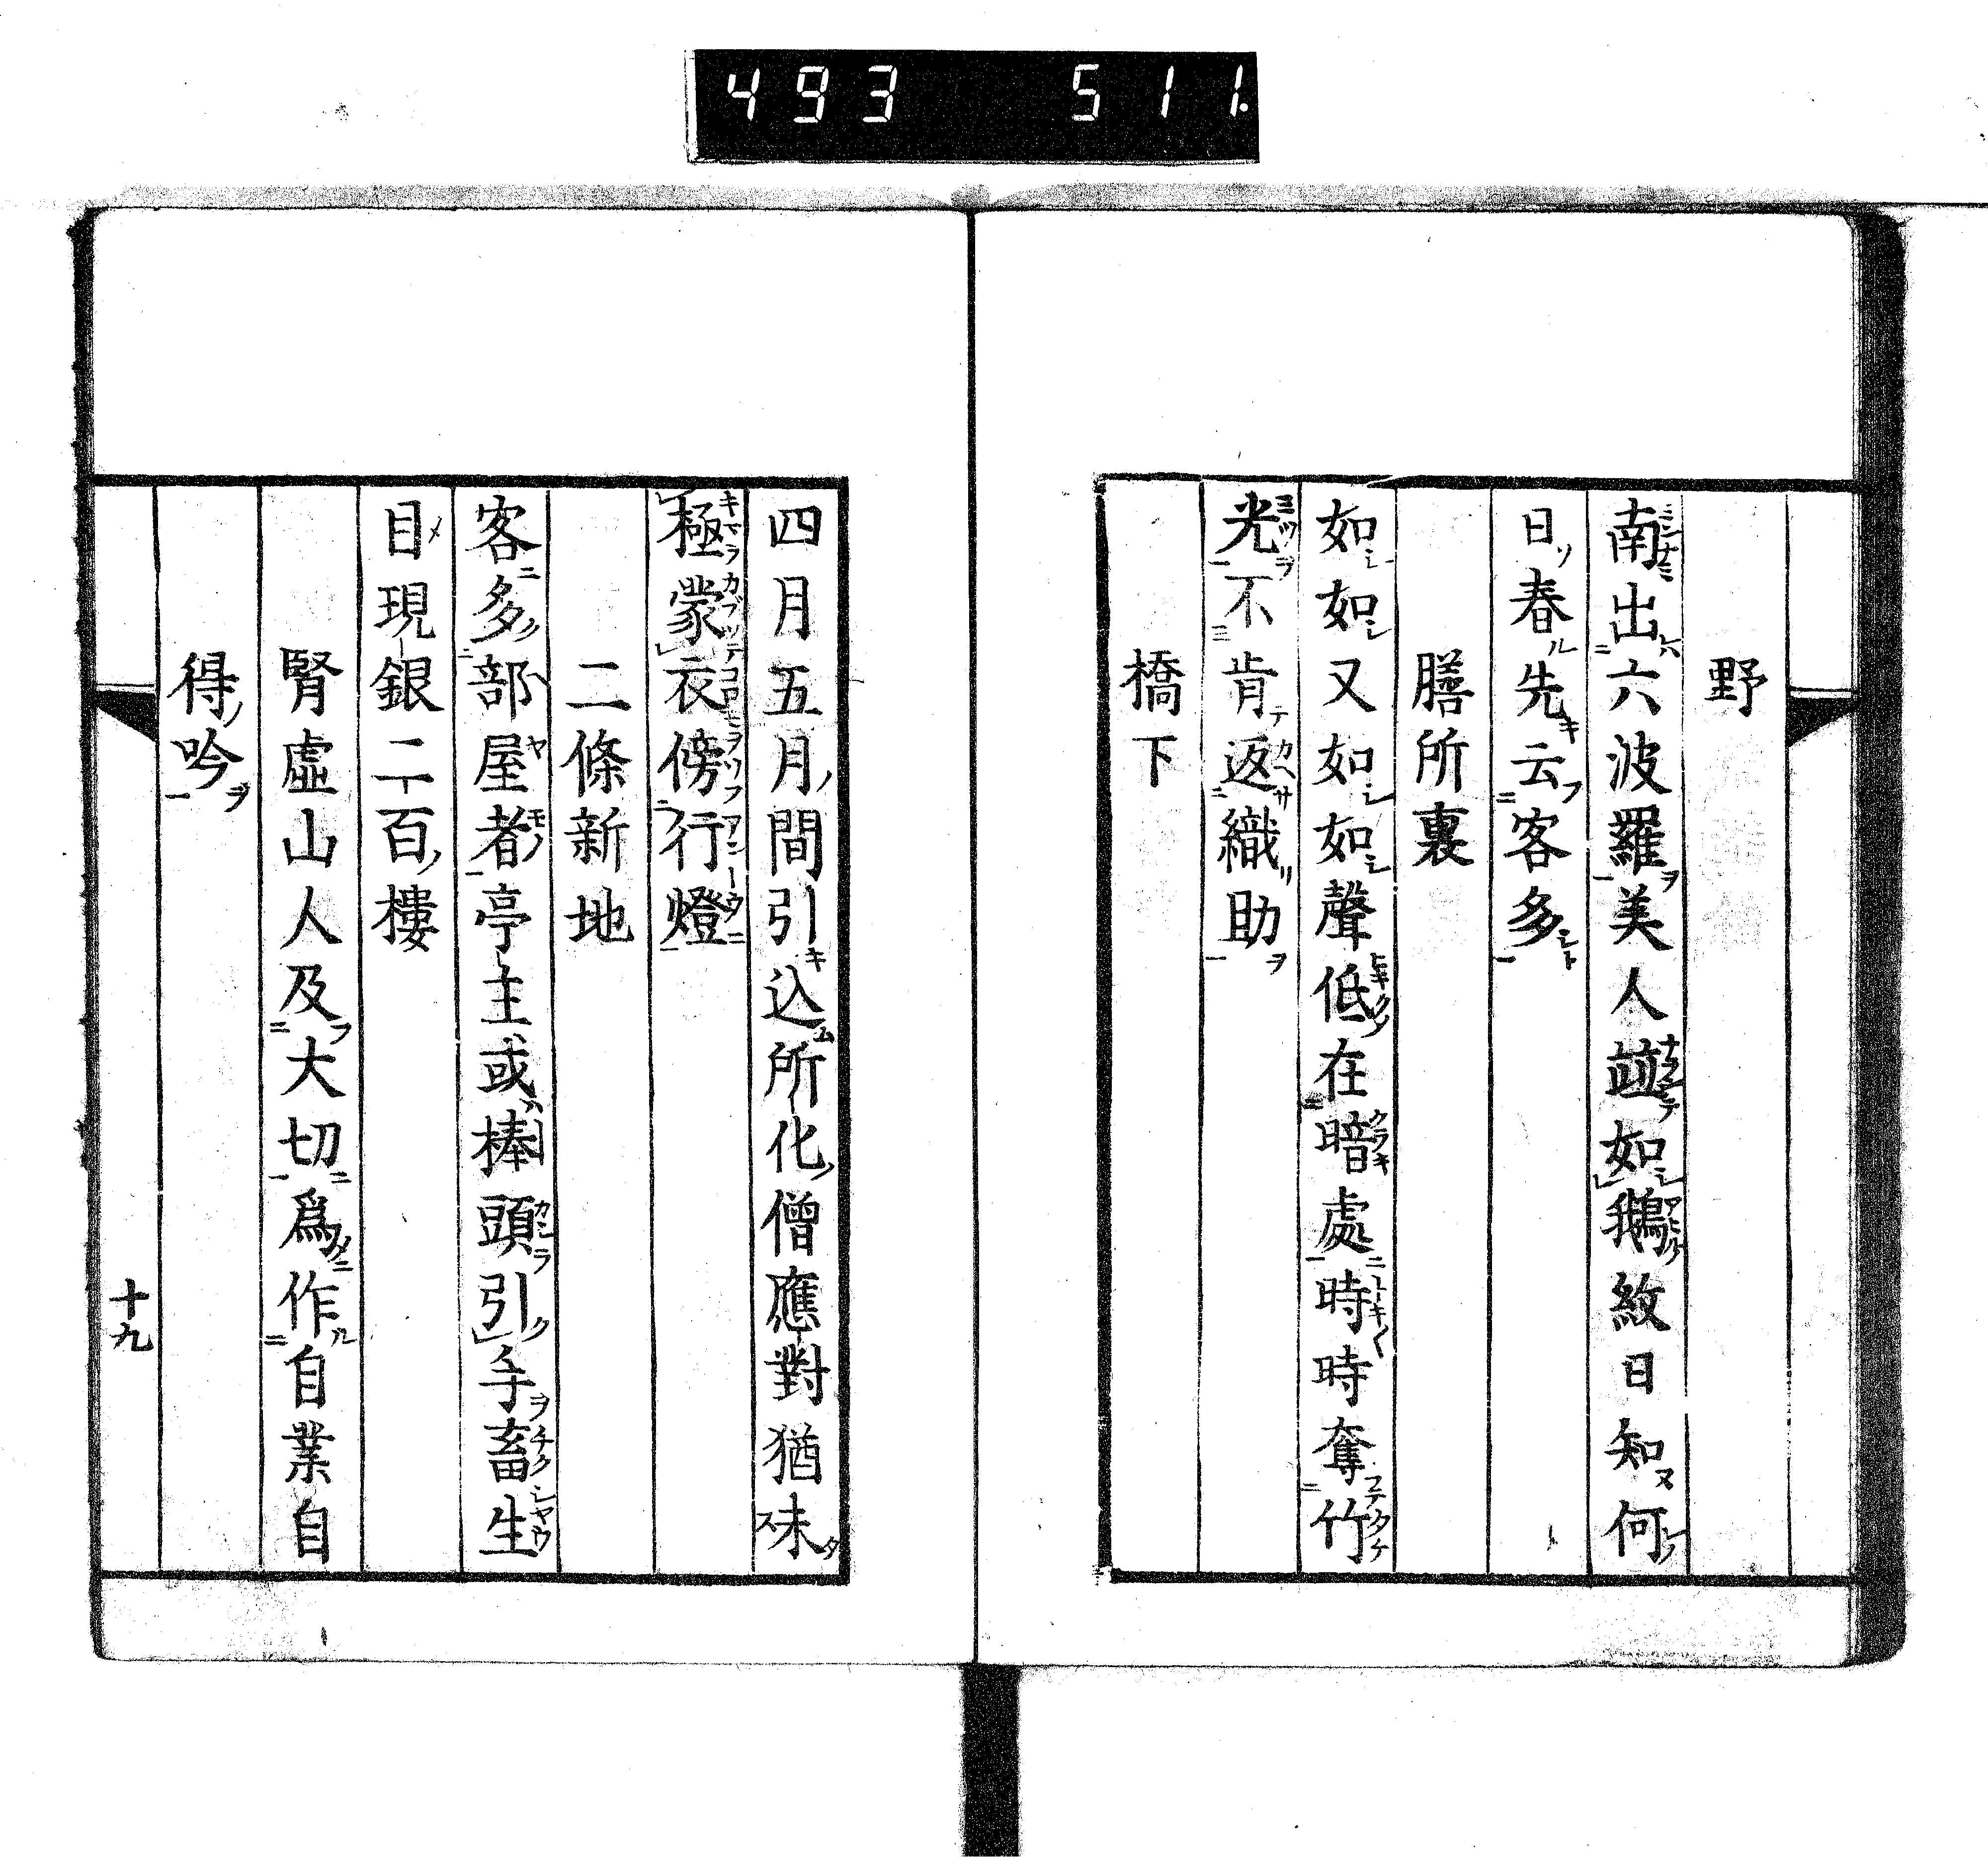 493 511.
野
南出六波羅美人竝如鵝紋日知何
日春先云客多
膳所裏
如如又如如聲低在暗處時時奪竹
光不肯返織助
橋下
四月五月間引込所化僧應對猶未
極蒙衣傍行燈
二條新地
客多部屋者亭主或棒頭引手畜生
目現銀二百樓
腎虛山人及大切爲作自業自
得吟
十九